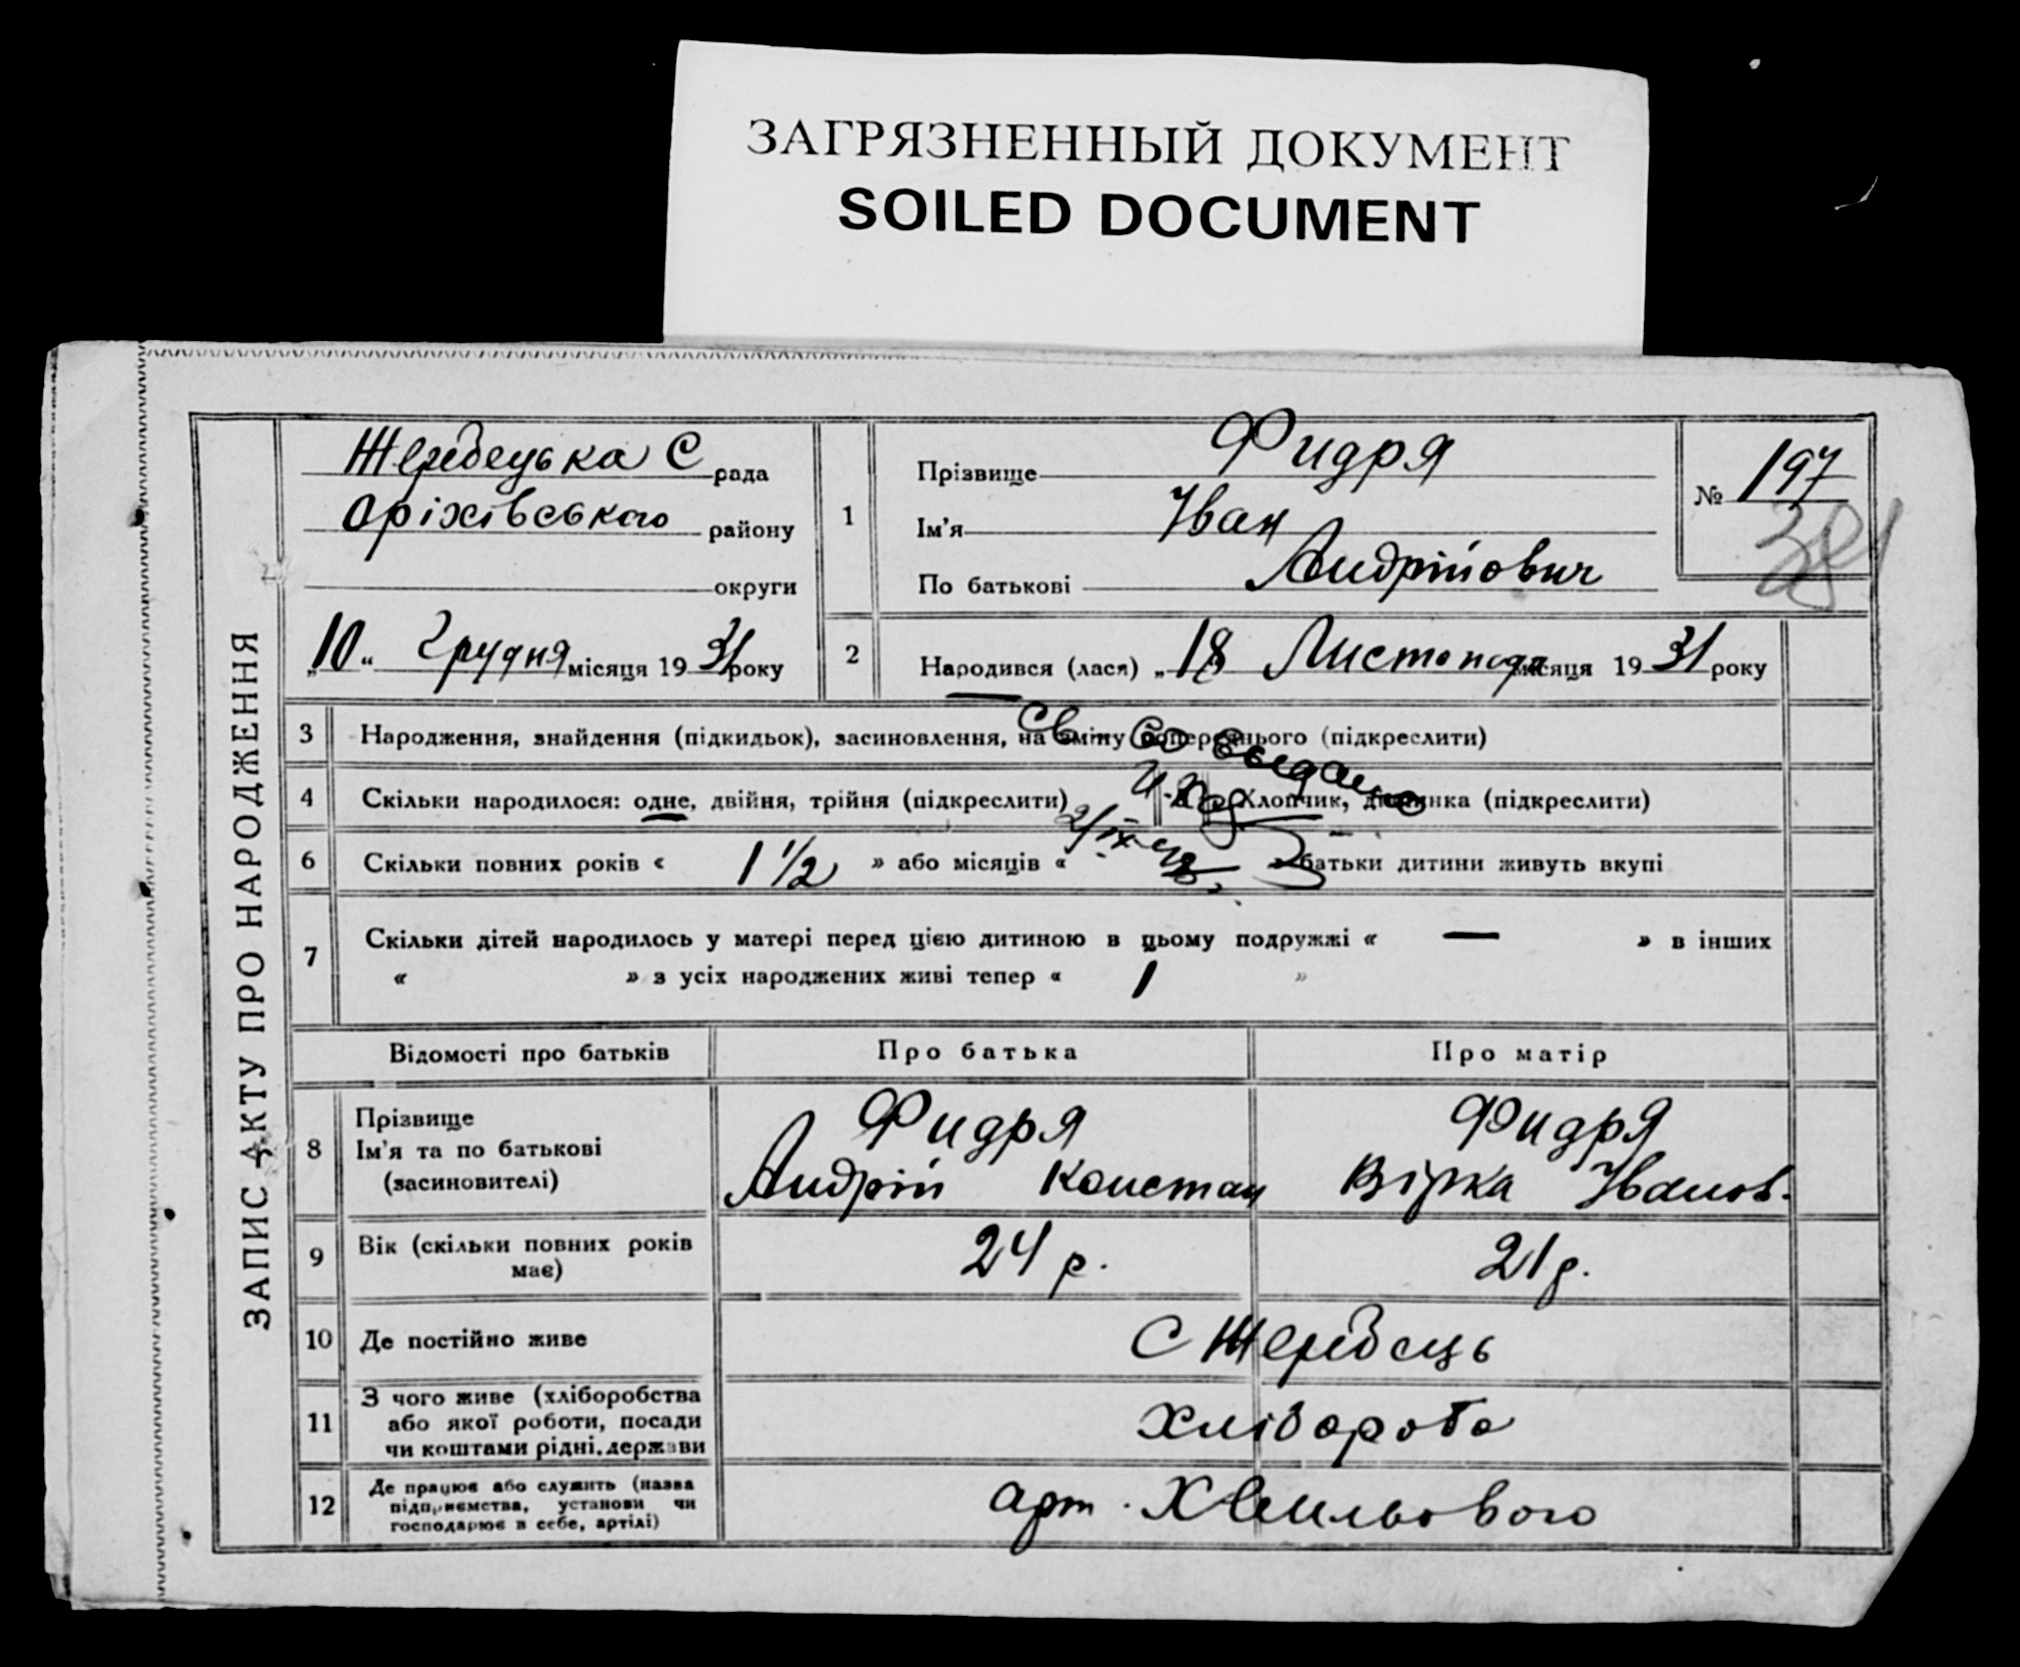 ЗАГРЯЗНЕННЫЙ ДОКУМЕНТ
SOILED DOCUMENT
ЗАПИС АКТУ ПРО НАРОДЖЕННЯ
Жеребецька С рада
Оріхівського району
округи
„10“ Грудня місяця 1931 року
1
Прізвище Фидря
Ім’я Іван
По батькові Андрійович
№ 197
2
Народився (лася) „18 Листопада місяця 1931 року
3 Народження, знайдення (підкидьок), засиновлення, на зміну попереднього (підкреслити)
Св-во выдано
4 Скільки народилося: одне, двійня, трійня (підкреслити) Хлопчик, дівчинка (підкреслити)
6 Скільки повних років « 1 1/2 » або місяців « » батьки дитини живуть вкупі
7 Скільки дітей народилось у матері перед цією дитиною в цьому подружжі « — » в інших
« » з усіх народжених живі тепер « 1 »
Відомості про батьків Про батька Про матір
8 Прізвище
Ім’я та по батькові
(засиновителі)
Фидря
Андрій Констан
Фидря
Вірка Іванов.
9 Вік (скільки повних років
має)
24 р. 21 р.
10 Де постійно живе С Жеребець
11 З чого живе (хліборобства
або якої роботи, посади
чи коштами рідні, держави
Хлібороб
12 Де працює або служить (назва
підприємства, установи чи
господарює в себе, артілі)
арт. Хвильового